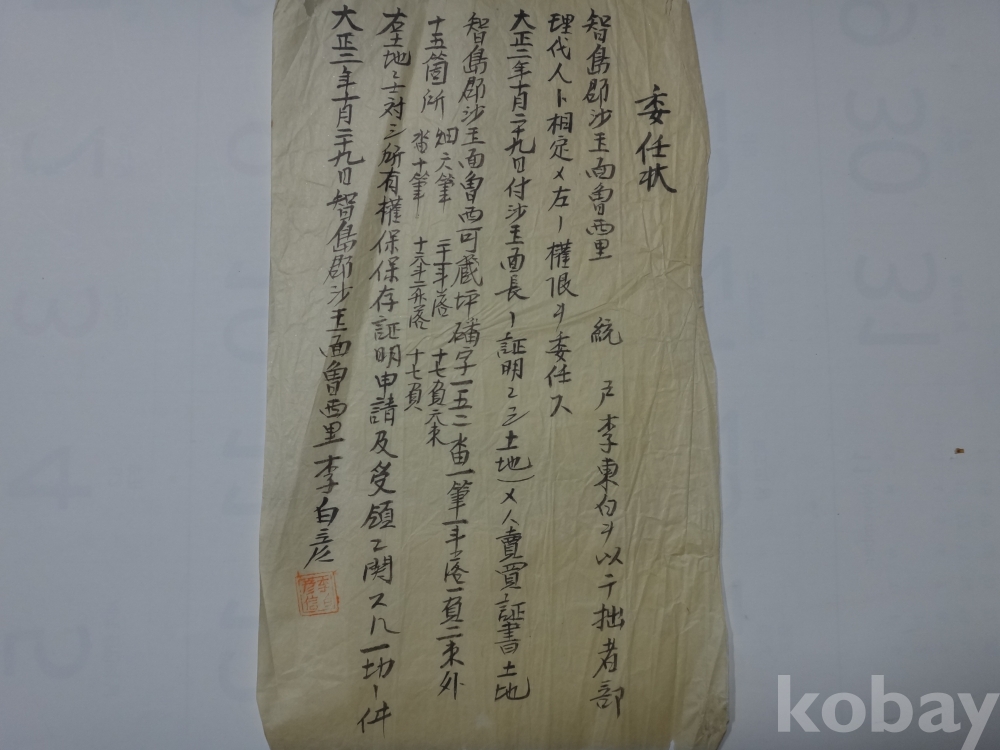 委任状
智島郡沙玉面魯西里 統 戸李東白ヲ以テ拙者部
理代人ト相定メ左ノ權限ヲ委任ス
大正二年十月二十九日付沙玉面長ノ証明 土地 賣買証書土地
智島郡沙玉面魯西可蔵坪磻字一五二畓一筆一斗落一負二束外
十五箇所 畑六筆 二十一斗落 十七負六束
畓十筆 落 十七負
右土地ニ対シ所有權保保存証明申請及受領ニ関スル一切ノ件
大正二年十月二十九日智島郡沙玉面魯西里李白彦
kobay